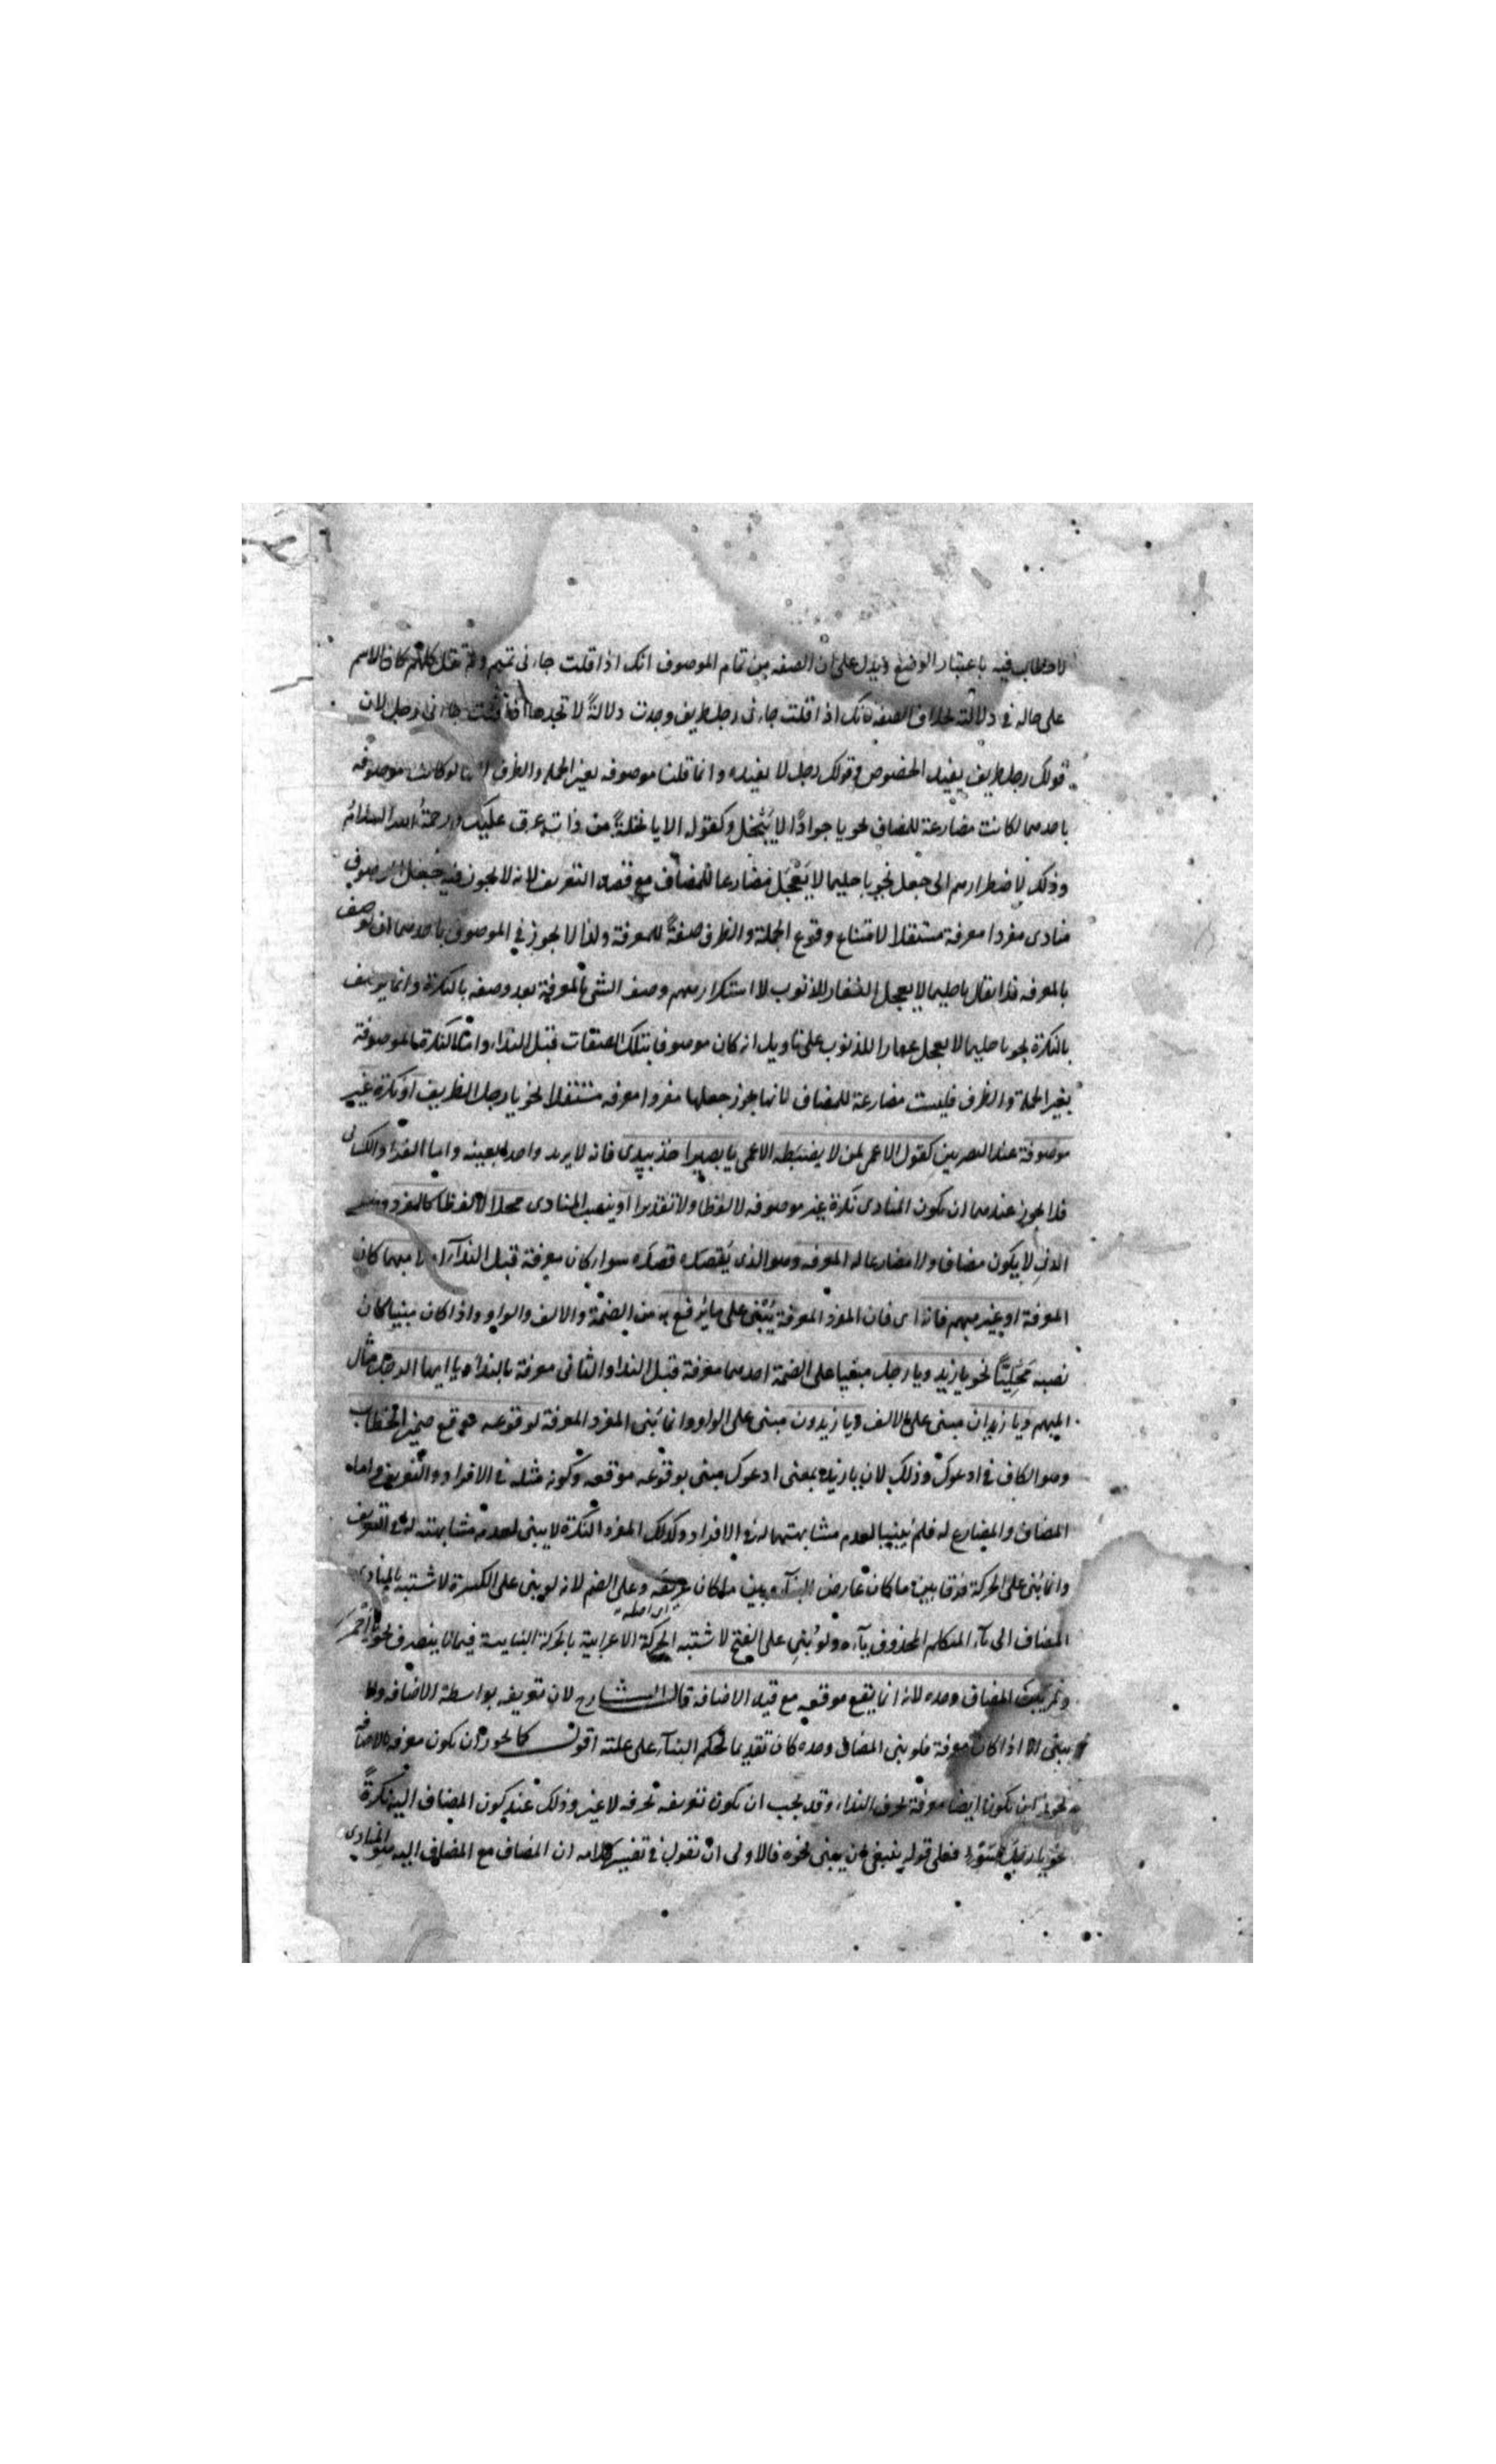 لا خطاب فيه باعتبار الوضع ويدل على ان الصفه من تمام الموصوف انك اذا قلت جاءنى تميم ولم تقل كلهم كان الاسم
على حاله فى دلالته بخلاف الصفه فانك اذا قلت جاءنى رجل ظريف وجدت دلالةً لا تجدها اذا قلت جاءنى رجل لان
قولك رجل ظريف يفيد الخصوص وقولك رجل لا يفيده وانما قلنا موصوفه بغير الجمله والظرف لانها لو كانت موصوفه
باحدهما لكانت مضارعة للمضاف نحو يا جوادًا لا يَبْخل وكقوله الا يا نخلةً من ذات عرق عليكِ ورحمةُ الله السلامُ
وذلك لاضطرارهم الى جعل نحو يا حليما لا يَعْجَل مضارعا للمضاف مع قصد التعريف لانه لا يجوز فيه جعل الموصوف
منادى مفردا معرفة مستقلا لامتناع وقوع الجملة والظرف صفةً للمعرفة ولذا لا يجوز فى الموصوف باحدهما ان يوصف
بالمعرفه فلا يقال يا حليما لا يعجل الغفار للذنوب لاستكرارهم وصف الشئ بالمعرفة بعد وصفه بالنكرة وانما يوصف
بالنكرة نحو يا حليما لا يعجل غفارا للذنوب على تاويل انه كان موصوفا بتلك الصفات قبل النداء واما النكرة الموصوفة
بغير الجملة والظرف فليست مضارعة للمضاف لانها يجوز جعلها مفردا معرفه مستقلا نحو يا رجل الظريف او نكرة غير
موصوفة عند البصريين كقول الاعمى لمن لا يضبطه الاعمى يا بصيرا خذ بيدى فانه لا يريد واحدا بعينه واما الفراء والكسائى
فلا يجوز عندهما ان يكون المنادى نكرة غير موصوفه لا لفظا ولا تقديرا او ينصب المنادى محلا لا لفظا كالمفرد وهو
الذى لا يكون مضافا ولا مضارعا له المعرفه وهو الذى يَقصِدُه قصدَه سواء كان معرفة قبل النداء او لا مبهما كان
المعرفة او غير مبهم فانه اى فان المفرد المعرفة يُبْنى على ما يُرفع به من الضمة والالف والواو واذا كان مبنيا كان
نصبه مَحَلِيًّا نحو يا زيد ويا رجل مبنيا على الضمة احدهما معرفة قبل النداء والثانى معرفة بالنداء ويا ايها الرجل مثال
المبهم ويا زيدان مبنى على الالف ويا زيدون مبنى على الواو وانما بُنى المفرد المعرفة لوقوعه موقع ضمير الخطاب
وهو الكاف فى ادعوك وذلك لان يا زيد بمعنى ادعوك مبنى بوقوعه موقعه وكونه مثله فى الافراد والتعريف واما
المضاف والمضارع له فلم يُبنيا لعدم مشابهتهما له فى الافراد وكذلك المفرد النكرة لا يبنى لعدم مشابهته له فى التعريف
وانما بُنى على الحركة فرقا بين ما كان عارض البناء وبين ما كان عريقه وعلى الضم لانه لو بنى على الكسرة لاشتبه بالمنادى
اى اصله
المضاف الى ياء المتكلم المحذوف ياءه ولو بُنِى على الفتح لاشتبه الحركة الاعرابية بالحركة البنائية فيما لا ينصرف نحو يا احمر
ولم يُبن المضاف وحده لانه انما يقع موقعه مع قيد الاضافه قال الشارح لان تعريفه بواسطة الاضافه ولا
يبنى الا اذا كان معرفة فلو بنى المضاف وحده كان تقديما لحكم البناء على علته اقول كما يجوز ان يكون معرفه بالاضافه
يجوز ان يكون ايضا معرفة بحرف النداء وقد يجب ان يكون تعريفه بحرفه لا غير وذلك عند كون المضاف اليه نكرةً
نحو يا رجلَ فعلى قوله ينبغى ان يبنى نحوه فالاولى ان نقول فى تفسير كلامه ان المضاف مع المضاف اليه هو المنادى